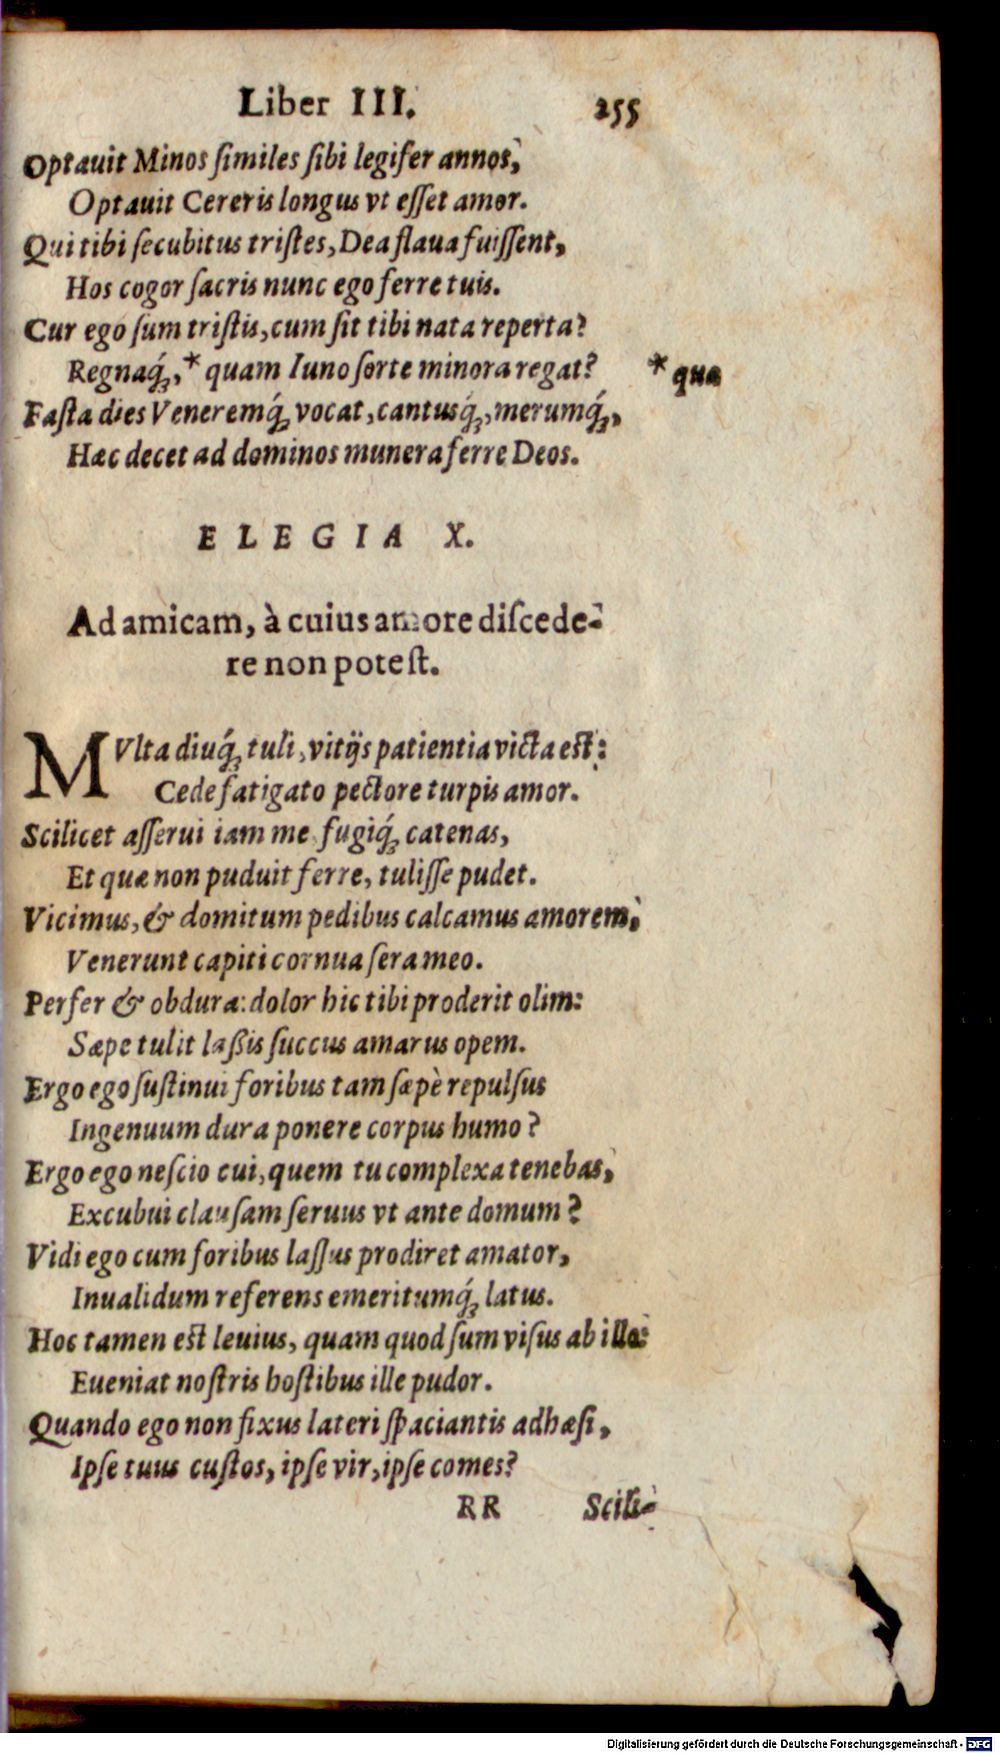 Liber III. 255
Optauit Minos ſimiles ſibi legifer annos,
Optauit Cereris longus vt eſſet amor.
Qui tibi ſecubitus triſtes, Dea flaua fuiſſent,
Hos cogor ſacris nunc ego ferre tuis.
Cur ego ſum triſtis, cum ſit tibi nata reperta?
Regnaq́;, * quam Iuno ſorte minora regat? * quæ
Faſta dies Veneremq́; vocat, cantusq́;, merumq́;,
Hæc decet ad dominos munera ferre Deos.
ELEGIA X.
Ad amicam, à cuius amore diſcede-
re non poteſt.
MVlta diuq́; tuli, vitijs patientia victa eſt:
Cede fatigato pectore turpis amor.
Scilicet aſſerui iam me, fugiq́; catenas,
Et quæ non puduit ferre, tuliſſe pudet.
Vicimus, & domitum pedibus calcamus amorem,
Venerunt capiti cornua ſera meo.
Perfer & obdura: dolor hic tibi proderit olim:
Sæpe tulit laßis ſuccus amarus opem.
Ergo ego ſuſtinui foribus tam ſæpè repulſus
Ingenuum dura ponere corpus humo?
Ergo ego neſcio cui, quem tu complexa tenebas,
Excubui clauſam ſeruus vt ante domum?
Vidi ego cum foribus laſſus prodiret amator,
Inualidum referens emeritumq́; latus.
Hoc tamen eſt leuius, quam quod ſum viſus ab illo:
Eueniat noſtris hoſtibus ille pudor.
Quando ego non fixus lateri ſpaciantis adhæſi,
Ipſe tuus cuſtos, ipſe vir, ipſe comes?
RR Scili-
Digitalisierung gefördert durch die Deutsche Forschungsgemeinschaft - DFG